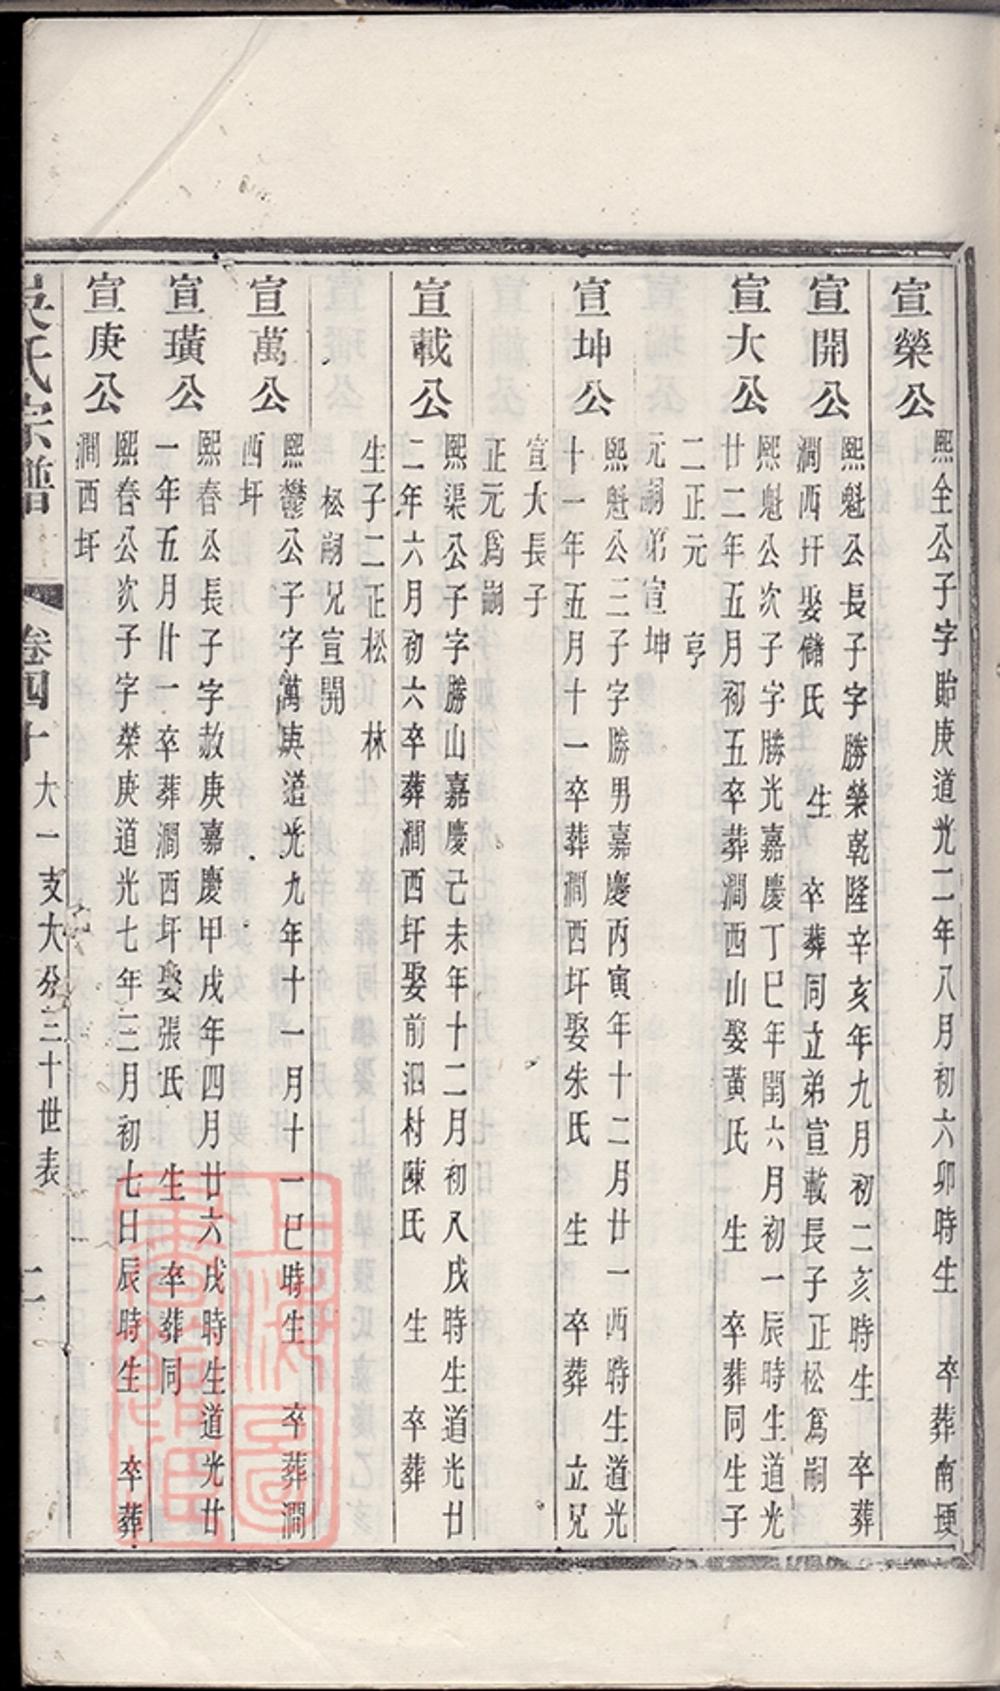 宣榮公
熙全公子字貽庚道光二年八月初六卯時生 卒葬南埂
宣開公
熙魁公長子字勝榮乾隆辛亥年九月初二亥時生 卒葬
澗西圩娶儲氏 生 卒葬同立弟宣載長子正松爲嗣
宣大公
熙魁公次子字勝光嘉慶丁巳年閏六月初一辰時生道光
廿二年五月初五卒葬澗西山娶黃氏 生 卒葬同生子
二正元 亨
元嗣弟宣坤
宣坤公
熙魁公三子字勝男嘉慶丙寅年十二月廿一酉時生道光
十一年五月十一卒葬澗西圩娶朱氏 生 卒葬 立兄
宣大長子
正元爲嗣
宣載公
熙渠公子字勝山嘉慶己未年十二月初八戌時生道光廿
二年六月初六卒葬澗西圩娶前泗村陳氏 生 卒葬
生子二正松 林
松嗣兄宣開
宣萬公
熙鬱公子字萬庚道光九年十一月十一巳時生 卒葬澗
西圩
宣璜公
熙春公長子字赦庚嘉慶甲戌年四月廿六戌時生道光廿
一年五月廿一卒葬澗西圩娶張氏 生 卒葬同
宣庚公
熙春公次子字榮庚道光七年三月初七日辰時生 卒葬
澗西圩
吳氏宗譜 卷四十 大一支大分三十世表 二
上海圖
書館藏